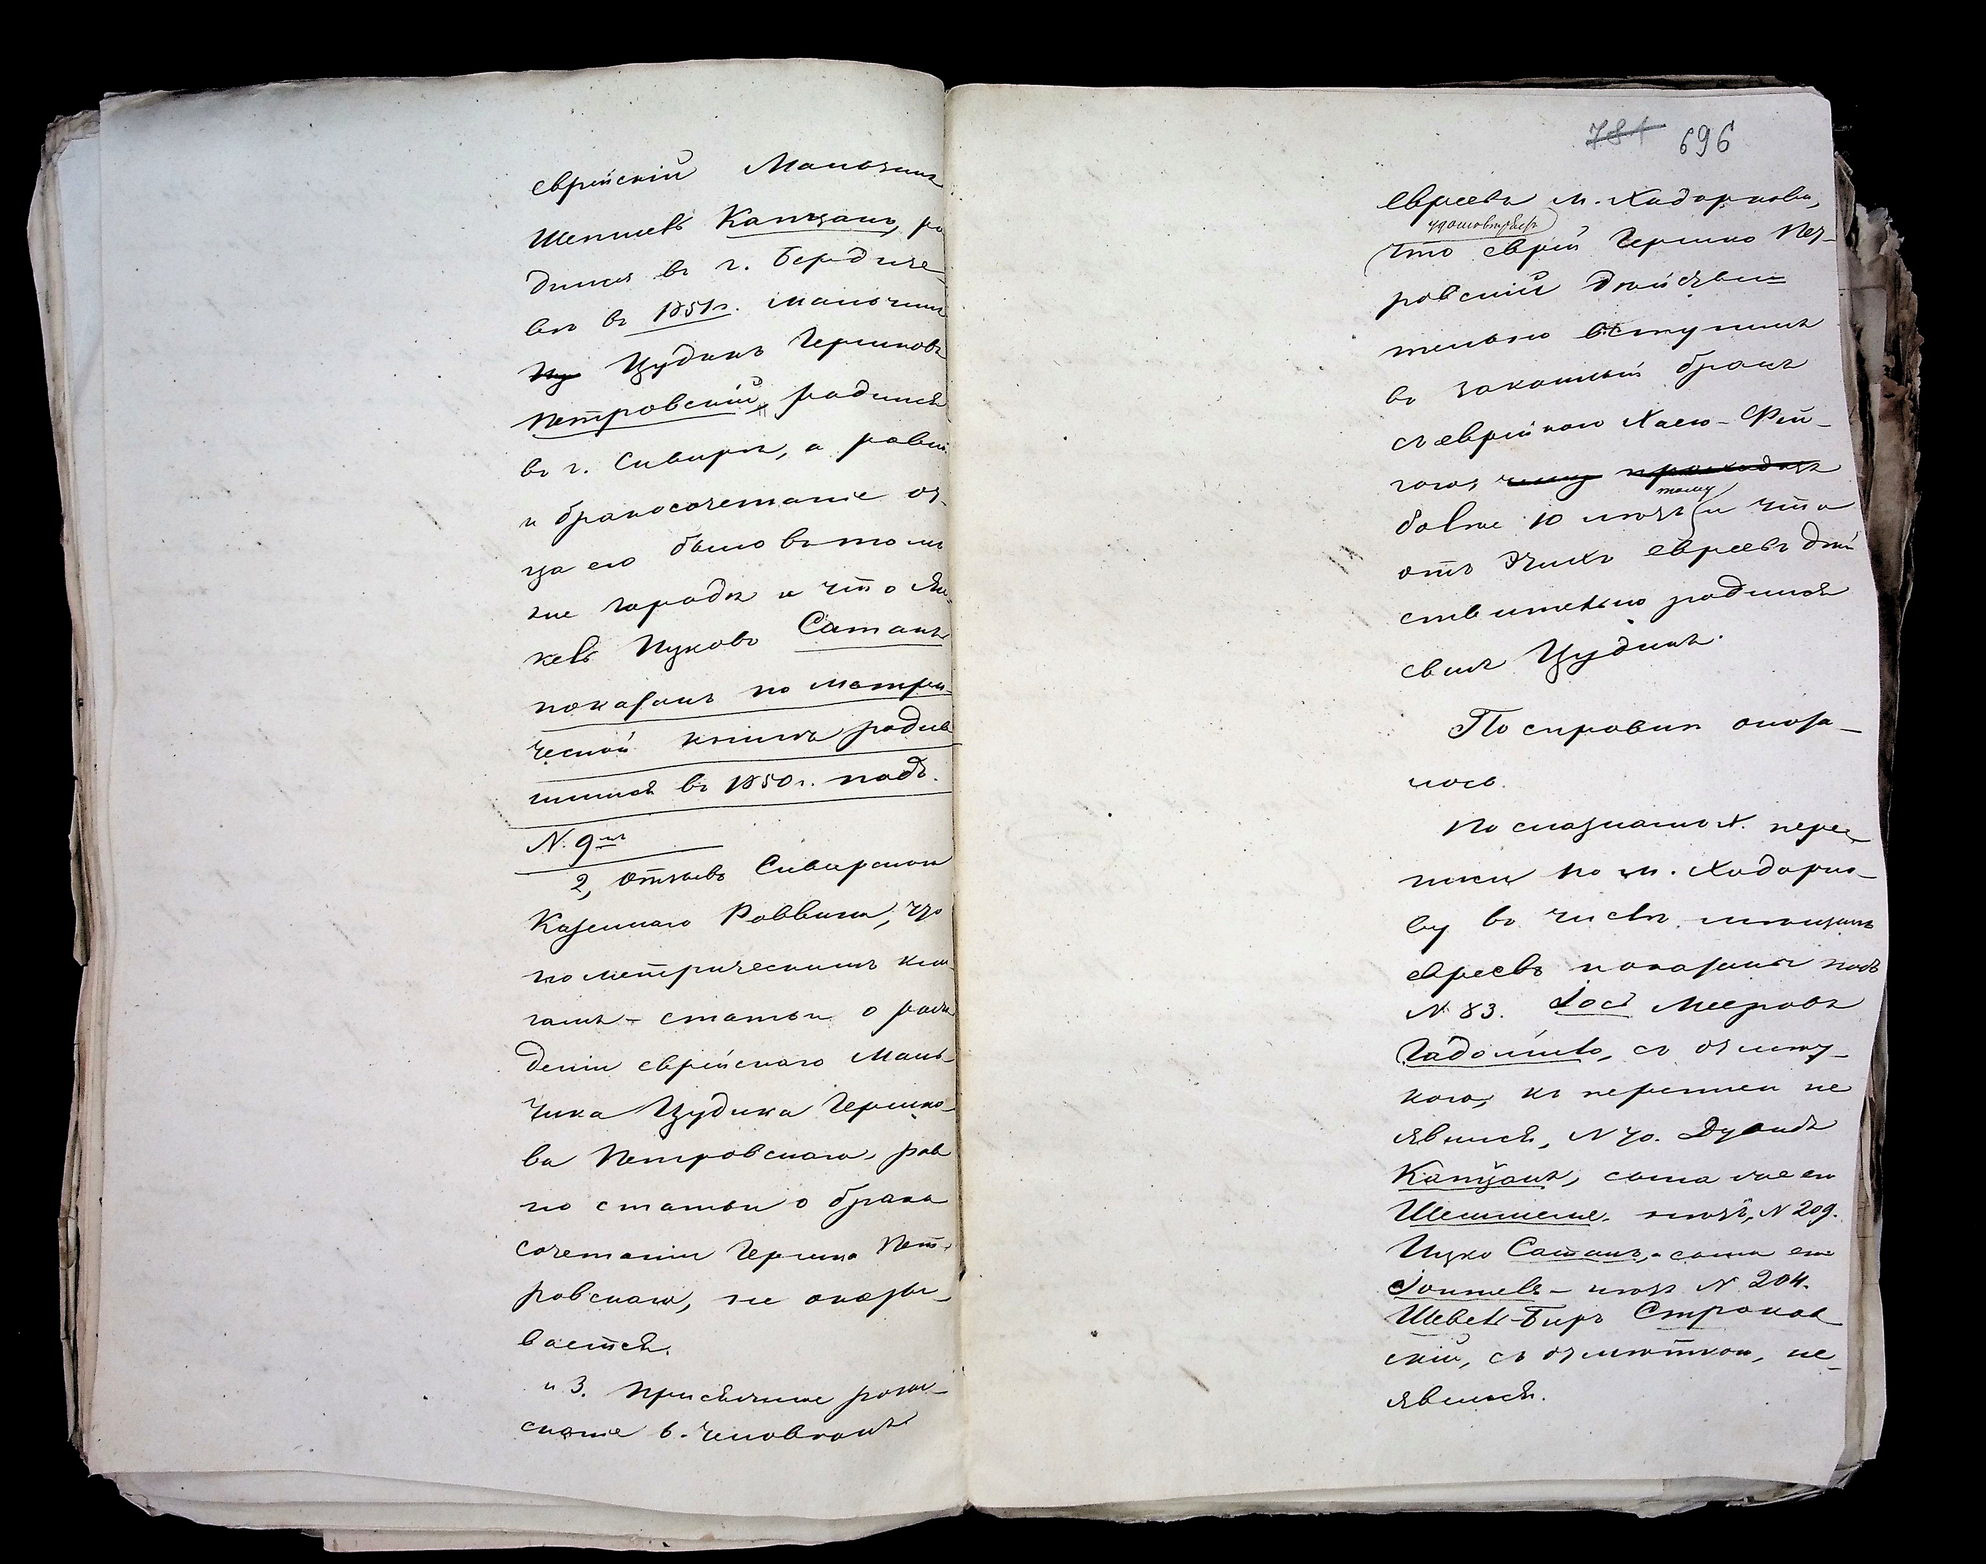 еврейскій Мальчикъ
Шепшель Капцанъ, ро
дился въ г. Бердиче-
вѣ въ 1851 г. мальчикъ
Иу Цудикъ Гершковъ
Петровскій, родился
въ г. Сквирѣ, а равно
и бракосочетаніе от-
ца его было въ томъ
же городѣ и что Ян-
кель Ицково Сатанъ
показанъ по метри-
ческой книгѣ родив
шимся въ 1850 г. подъ
N. 9мъ
2, отзывъ Сквирскаго
Казеннаго Раввина, что
по метрическимъ кни-
гамъ - статьи о рож
деніи еврейскаго Маль-
чика Цудика Гершко-
ва Петровскаго, рав
но статьи о брако
сочетаніи Гершка Пет-
ровскаго, не оказы-
вается.
и 3. Присяжные розы-
сканіе 6. человѣкъ
781 696
евреевъ м. Ходоркова,
удостовѣр
что еврей Гершко Пет-
ровскій дѣйстви-
тельно вступилъ
въ законный бракъ
съ еврейкою Хаею-Фей-
гою,
тому
болѣе 10 лѣтъ и что
отъ этихъ евреевъ дѣй
ствительно родился
сынъ Цудикъ.
По справкѣ оказа-
лось.
По сказкамъ X. переп
писи по м. Ходорко-
ву въ числѣ мѣщанъ
евреевъ показаны подъ
N 83. Іось Мееровъ
Гадолинъ, съ отмѣт-
кою, къ переписи не
явился, N 70. Дувидъ
Капцанъ, сына
Шепшеля. N 209.
Ицко Сатанъ, сына его
N 204.
Шевель-Биръ Строков
скій, съ отмѣткою, не-
явился.